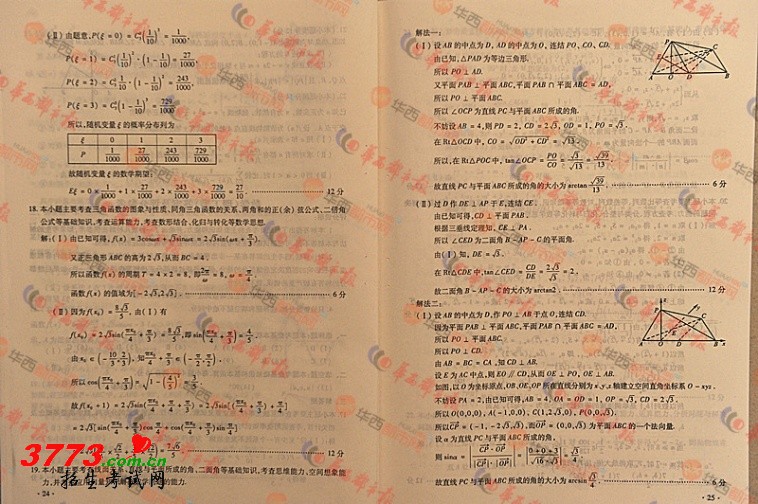 (Ⅱ)由题意,P(ξ=0)=C₃⁰(1/10)³=1/1000,
P(ξ=1)=C₃¹(1/10)²·(1-1/10)=27/1000,
P(ξ=2)=C₃²1/10·(1-1/10)²=243/1000,
P(ξ=3)=C₃³(1-1/10)³=729/1000.
所以,随机变量ξ的概率分布列为
ξ 0 1 2 3
P 1/1000 27/1000 243/1000 729/1000
故随机变量ξ的数学期望:
Eξ=0×1/1000+1×27/1000+2×243/1000+3×729/1000=27/10. 12分
18.本小题主要考查三角函数的图象与性质、同角三角函数的关系、两角和的正(余)弦公式、二倍角
公式等基础知识,考查运算能力,考查数形结合、化归与转化等数学思想.
解:(Ⅰ)由已知可得,f(x)=3cosωx+√3sinωx=2√3sin(ωx+π/3).
又正三角形ABC的高为2√3,从而BC=4.
所以函数f(x)的周期T=4×2=8,即2π/ω=8,ω=π/4.
函数f(x)的值域为[-2√3,2√3]. 6分
(Ⅱ)因为f(x₀)=8√3/5,由(Ⅰ)有
f(x₀)=2√3sin(πx₀/4+π/3)=8√3/5,即sin(πx₀/4+π/3)=4/5.
由x₀∈(-10/3,2/3),知πx₀/4+π/3∈(-π/2,π/2).
所以cos(πx₀/4+π/3)=√(1-(4/5)²)=3/5.
故f(x₀+1)=2√3sin(πx₀/4+π/4+π/3)=2√3sin[(πx₀/4+π/3)+π/4]
=2√3[sin(πx₀/4+π/3)cosπ/4+cos(πx₀/4+π/3)sinπ/4]
12分
19.本小题主要考查
所成的角、二面角等基础知识,考查思维能力、空间想象能
的能力.
·24·
解法一:
(Ⅰ)设AB的中点为D,AD的中点为O,连结PO、CO、CD.
由已知,△PAD为等边三角形.
所以PO⊥AD.
又平面PAB⊥平面ABC,平面PAB∩平面ABC=AD,
所以PO⊥平面ABC.
所以∠OCP为直线PC与平面ABC所成的角.
不妨设AB=4,则PD=2,CD=2√3,OD=1,PO=√3.
在Rt△OCD中,CO=√(OD²+CD²)=√13.
所以,在Rt△POC中,tan∠OCP=PO/CO=√3/√13=√39/13.
故直线PC与平面ABC所成的角的大小为arctan√39/13. 6分
(Ⅱ)过D作DE⊥AP于E,连结CE.
由已知可得,CD⊥平面PAB.
根据三垂线定理知,CE⊥PA.
所以∠CED为二面角B-AP-C的平面角.
由(Ⅰ)知,DE=√3.
在Rt△CDE中,tan∠CED=CD/DE=2√3/√3=2.
故二面角B-AP-C的大小为arctan2. 12分
解法二:
(Ⅰ)设AB的中点为D,作PO⊥AB于点O,连结CD.
因为平面PAB⊥平面ABC,平面PAB∩平面ABC=AD,
所以PO⊥平面ABC.
所以PO⊥CD.
由AB=BC=CA,知CD⊥AB.
设E为AC中点,则EO∥CD,从而OE⊥PO,OE⊥AB.
如图,以O为坐标原点,OB、OE、OP所在直线分别为x、y、z轴建立空间直角坐标系O-xyz.
不妨设PA=2,由已知可得,AB=4,OA=OD=1,OP=√3,CD=2√3.
所以O(0,0,0),A(-1,0,0),C(1,2√3,0),P(0,0,√3).
所以CP=(-1,-2√3,√3),而OP=(0,0,√3)为平面ABC的一个法向量.
设α为直线PC与平面ABC所成的角,
则sinα=|CP·OP/|CP|·|OP||=|(0+0+3)/(√16·√3)|=√3/4.
故直线PC与平面ABC所成的角的大小为arcsin√3/4. 6分
·25·
3773.com.cn
招生考试网
华西都市报